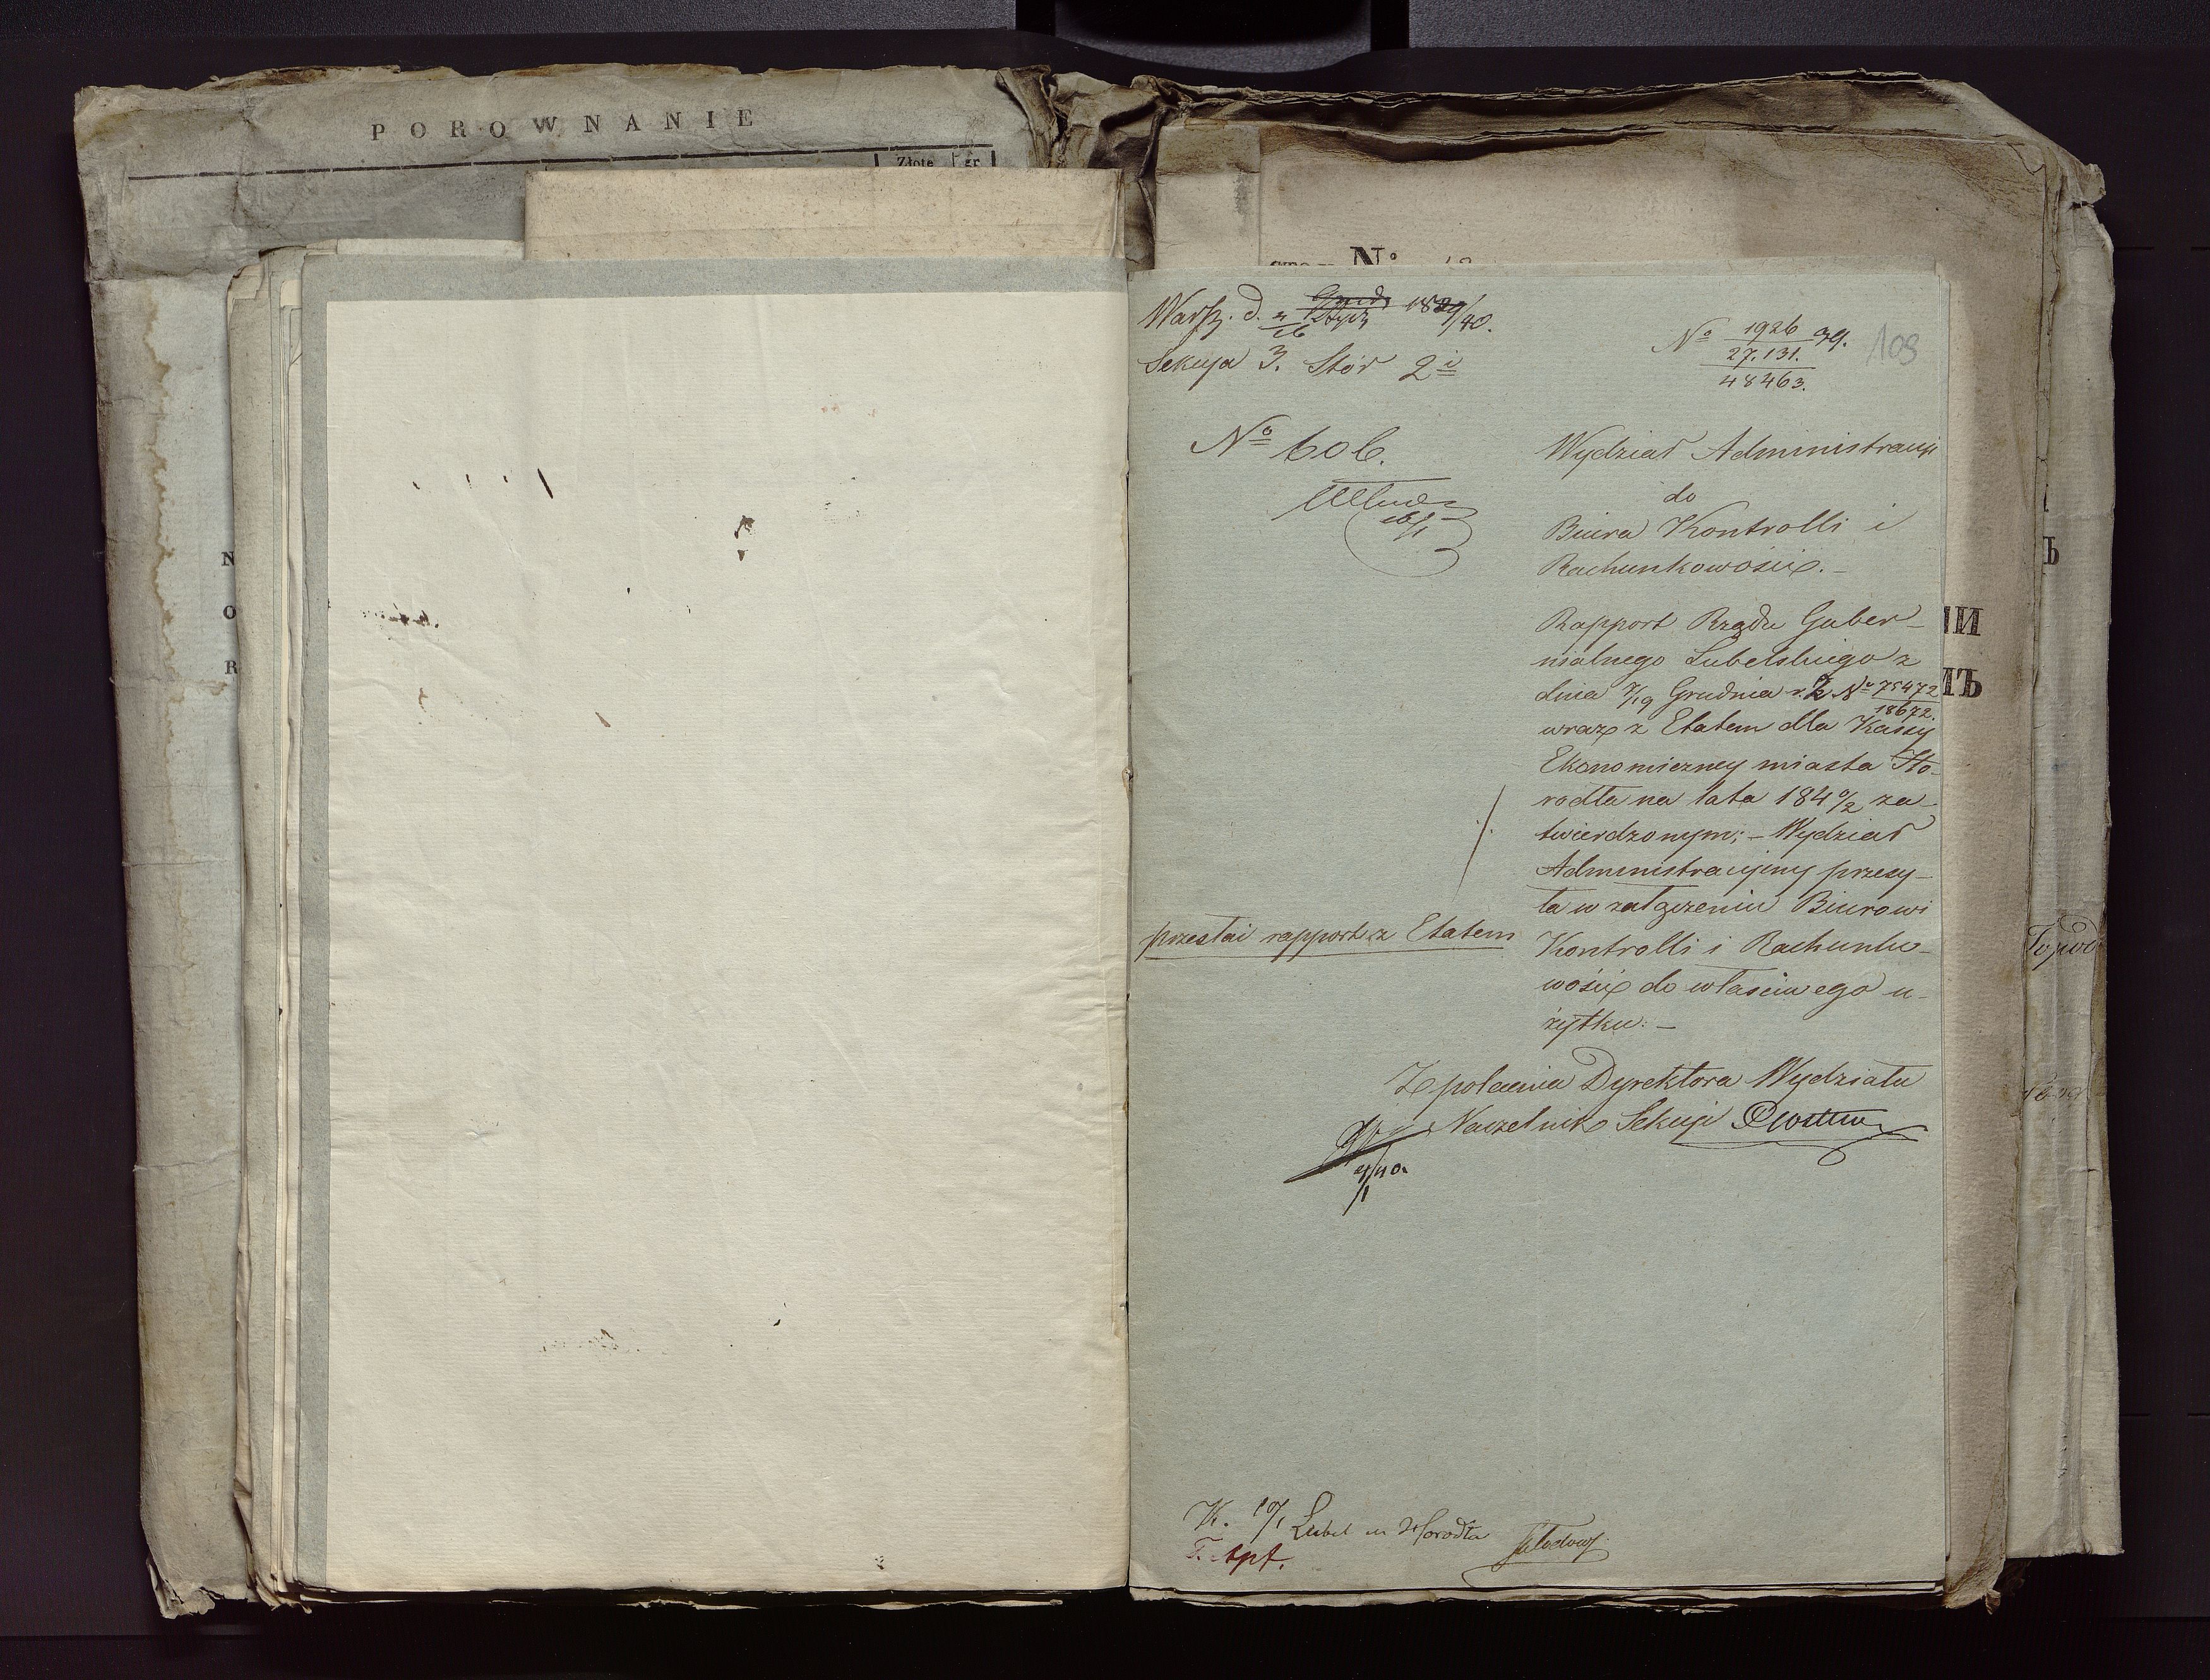 POROWNANIE
Złote gr
N
O
R
No
Warsz. d. 4/16 Grud. Stycz 1839/40.
Sekcya 3. Stół 2i
No 1926 39.
27.131.
48463.
109
No 606.
16/1
Wydział Administracyi
do
Biura Kontrolli i
Rachunkowości.-
Rapport Rządu Guber-
nialnego Lubelskiego z
dnia 7/19 Grudnia r. z. No 75472
18672.
wraz z Etatem dla Kassy
Ekonomiczney miasta Ho-
rodła na lata 1840/2 za-
twierdzonym; - Wydział
Administracyiny przesy-
ła w załączeniu Biurowi
Kontrolli i Rachunko-
wości do właściwego u-
żytku. -
przesłać rapport z Etatem
Z polecenia Dyrektora Wydziału
Naczelnik Sekcyi
4/40
/1
ИИ
ІЪ
Ъ
Город
K. 10/1 Lubel m Horodła